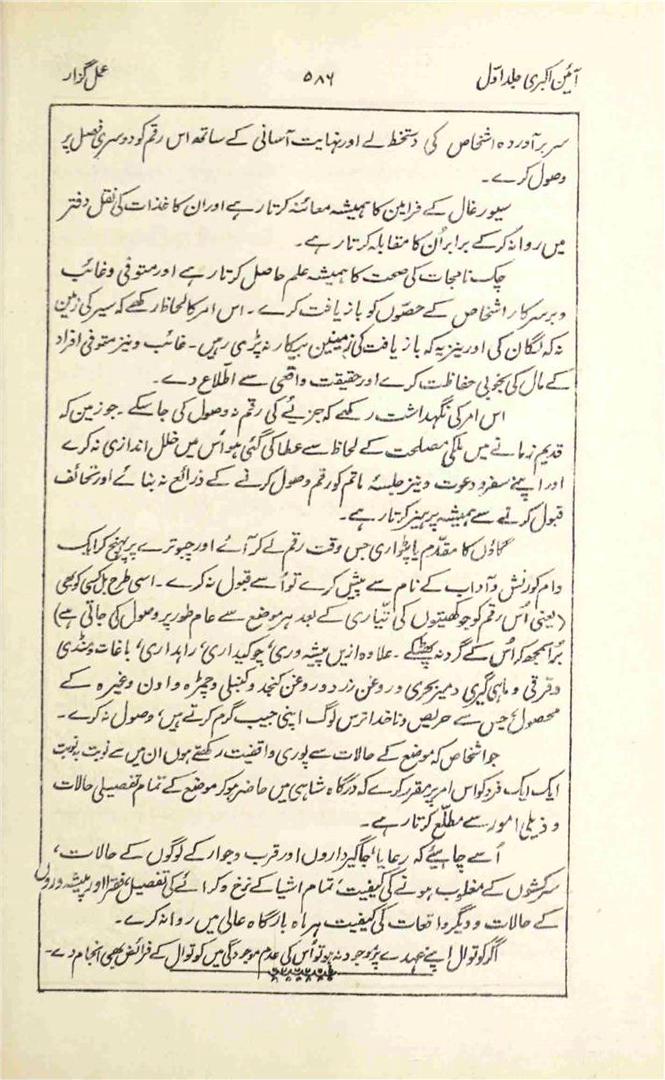 آئین اکبری جلد اول ۵۸۶ عمل گزار
سربرآوردہ اشخاص کی دستخط لے اور نہایت آسانی کے ساتھ اس رقم کو دوسری فصل پر
وصول کرے۔
سیورغال کے فرامین کا ہمیشہ معائنہ کرتا رہے اور ان کاغذات کی نقل دفتر
میں روانہ کرکے برابر اُن کا مقابلہ کرتا رہے۔
چک نامجات کی صحت کا ہمیشہ علم حاصل کرتا رہے اور متوفی و غائب
و برسرکار اشخاص کے حصّوں کو بازیافت کرے۔ اس امر کا لحاظ رکھے کہ سیر کی زمین
نہ کہ لگان کی اور نیز یہ کہ بازیافت کی زمینین بیکار نہ پڑی رہیں۔ غائب و نیز متوفی افراد
کے مال کی بخوبی حفاظت کرے اور حقیقت واقعی سے اطلاع دے۔
اس امر کی نگہداشت رکھے کہ جزیئے کی رقم نہ وصول کی جاسکے۔ جو زمین کہ
قدیم زمانے میں ملکی مصلحت کے لحاظ سے عطا کی گئی ہو اُس میں خلل اندازی نہ کرے
اور اپنے سفر و دعوت و نیز جلسۂ ماتم کو رقم وصول کرنے کے ذرائع نہ بنائے اور تحائف
قبول کرنے سے ہمیشہ پرہیز کرتا رہے۔
گاؤں کا مقدّم یا پٹواری جس وقت رقم لے کر آئے اور چبوترے پر پہنچ کر ایک
دام کورنش و آداب کے نام سے پیش کرے تو اُسے قبول نہ کرے۔ اسی طرح بل کسی کو بھی
(یعنی اُس رقم کو جو کھیتوں کی تیاری کے بعد ہر موضع سے عام طور پر وصول کی جاتی ہے)
بُرا سمجھ کر اُس کے گرد نہ پھٹکے۔ علاوہ ازیں پیشہ وری، چوکیداری، راہداری، باغات و منڈی
و قرقی و ماہی گیری و میربحری و روغن زرد و روغن کنجد و کنبلی و چمڑہ و اون وغیرہ کے
محصول جس سے حریص و ناخدا ترس لوگ اپنی جیب گرم کرتے ہیں، وصول نہ کرے۔
جو اشخاص کہ موضع کے حالات سے پوری واقفیت رکھتے ہوں ان میں سے نوبت بہ نوبت
ایک ایک فرد کو اس امر پر مقرر کرے کہ درگاہ شاہی میں حاضر ہوکر موضع کے تمام تفصیلی حالات
و ذیلی امور سے مطلع کرتا رہے۔
اُسے چاہیئے کہ رعایا، جاگیرداروں اور قرب و جوار کے لوگوں کے حالات،
سرکشوں کے مغلوب ہونے کی کیفیت، تمام اشیا کے نرخ و کرائے کی تفصیل، فقرا اور پیشہ وروں
کے حالات و دیگر واقعات کی کیفیت ہر ماہ بارگاہ عالی میں روانہ کرے۔
اگر کوتوال اپنے عہدے پر موجود نہ ہو تو اُس کی عدم موجودگی میں کوتوال کے فرائض بھی انجام دے۔